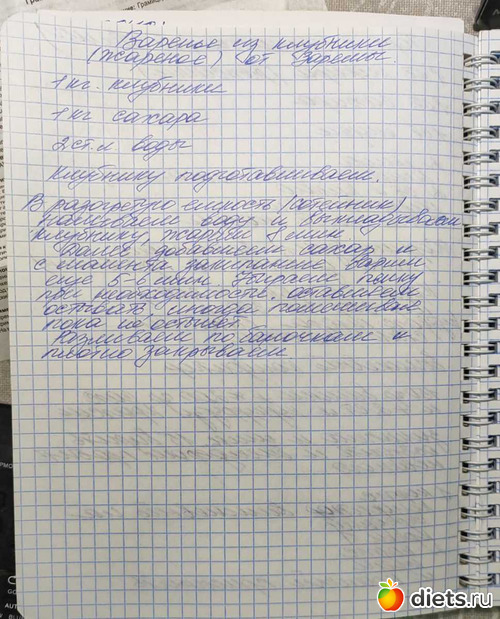 Варенье из клубники
(жареное) от Заремы
1 кг. клубники
1 кг сахара
2 ст. л воды
Клубнику подготавливаем.
В разогретую емкость (сотейник)
наливаем воду и выкладываем
клубнику, жарим 8 мин
Далее добавляем сахар и
с момента закипания варим
еще 5-6 мин. Убираем пенку
при необходимости, оставляем
остывать, иногда помешивая
пока не остынет.
Разливаем по баночкам и
плотно закрываем
diets.ru